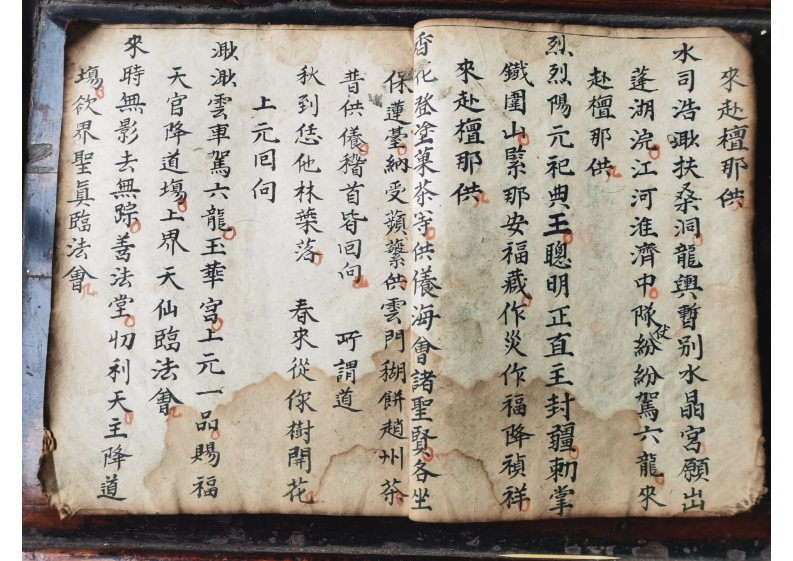 來赴檀那供
水司浩渺扶桑洞龍輿暫别水晶宮願出
蓬湖浣江河淮濟中隊仗紛紛駕六龍來
赴檀那供
烈烈陽元祀典王聰明正直主封疆勅掌
鐵圍山緊那安福藏作災作福降禎祥
來赴檀那供
香花登塗菓茶等供儀海會諸聖賢各坐
保蓮䑓納受蘋蘩供雲門糊餅趙州茶
普供儀稽首皆回向 所謂道
秋到恁他林葉落 春來從你樹開花
上元回向
渺渺雲車駕六龍玉華宮上元一品賜福
天官降道塲上界天仙臨法會
來時無影去無踪善法堂忉利天主降道
塲欲界聖眞臨法會